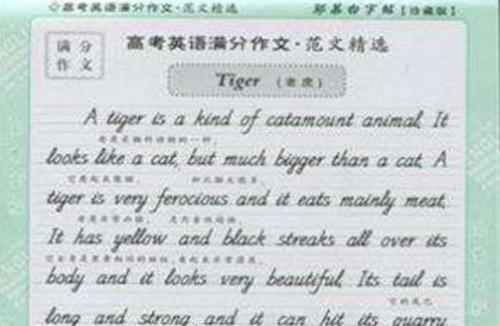 ◇高考英语满分作文·范文精选 邹慕白字帖【珍藏版】
满分
作文
高考英语满分作文·范文精选
Tiger （老虎）
A tiger is a kind of catamount animal. It
looks like a cat, but much bigger than a cat. A
它看起来像猫， 却比猫大很多。
tiger is very ferocious and it eats mainly meat.
老虎非常凶猛， 是肉食性动物。
It has yellow and black streaks all over its
body and it looks very beautiful. Its tail is
它的尾巴
long and strong and it can hit its quarry